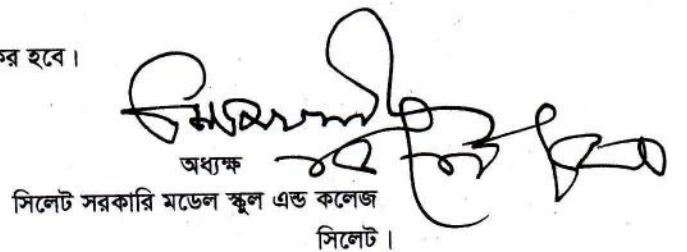 কর হবে।
অধ্যক্ষ
সিলেট সরকারি মডেল স্কুল এন্ড কলেজ
সিলেট।